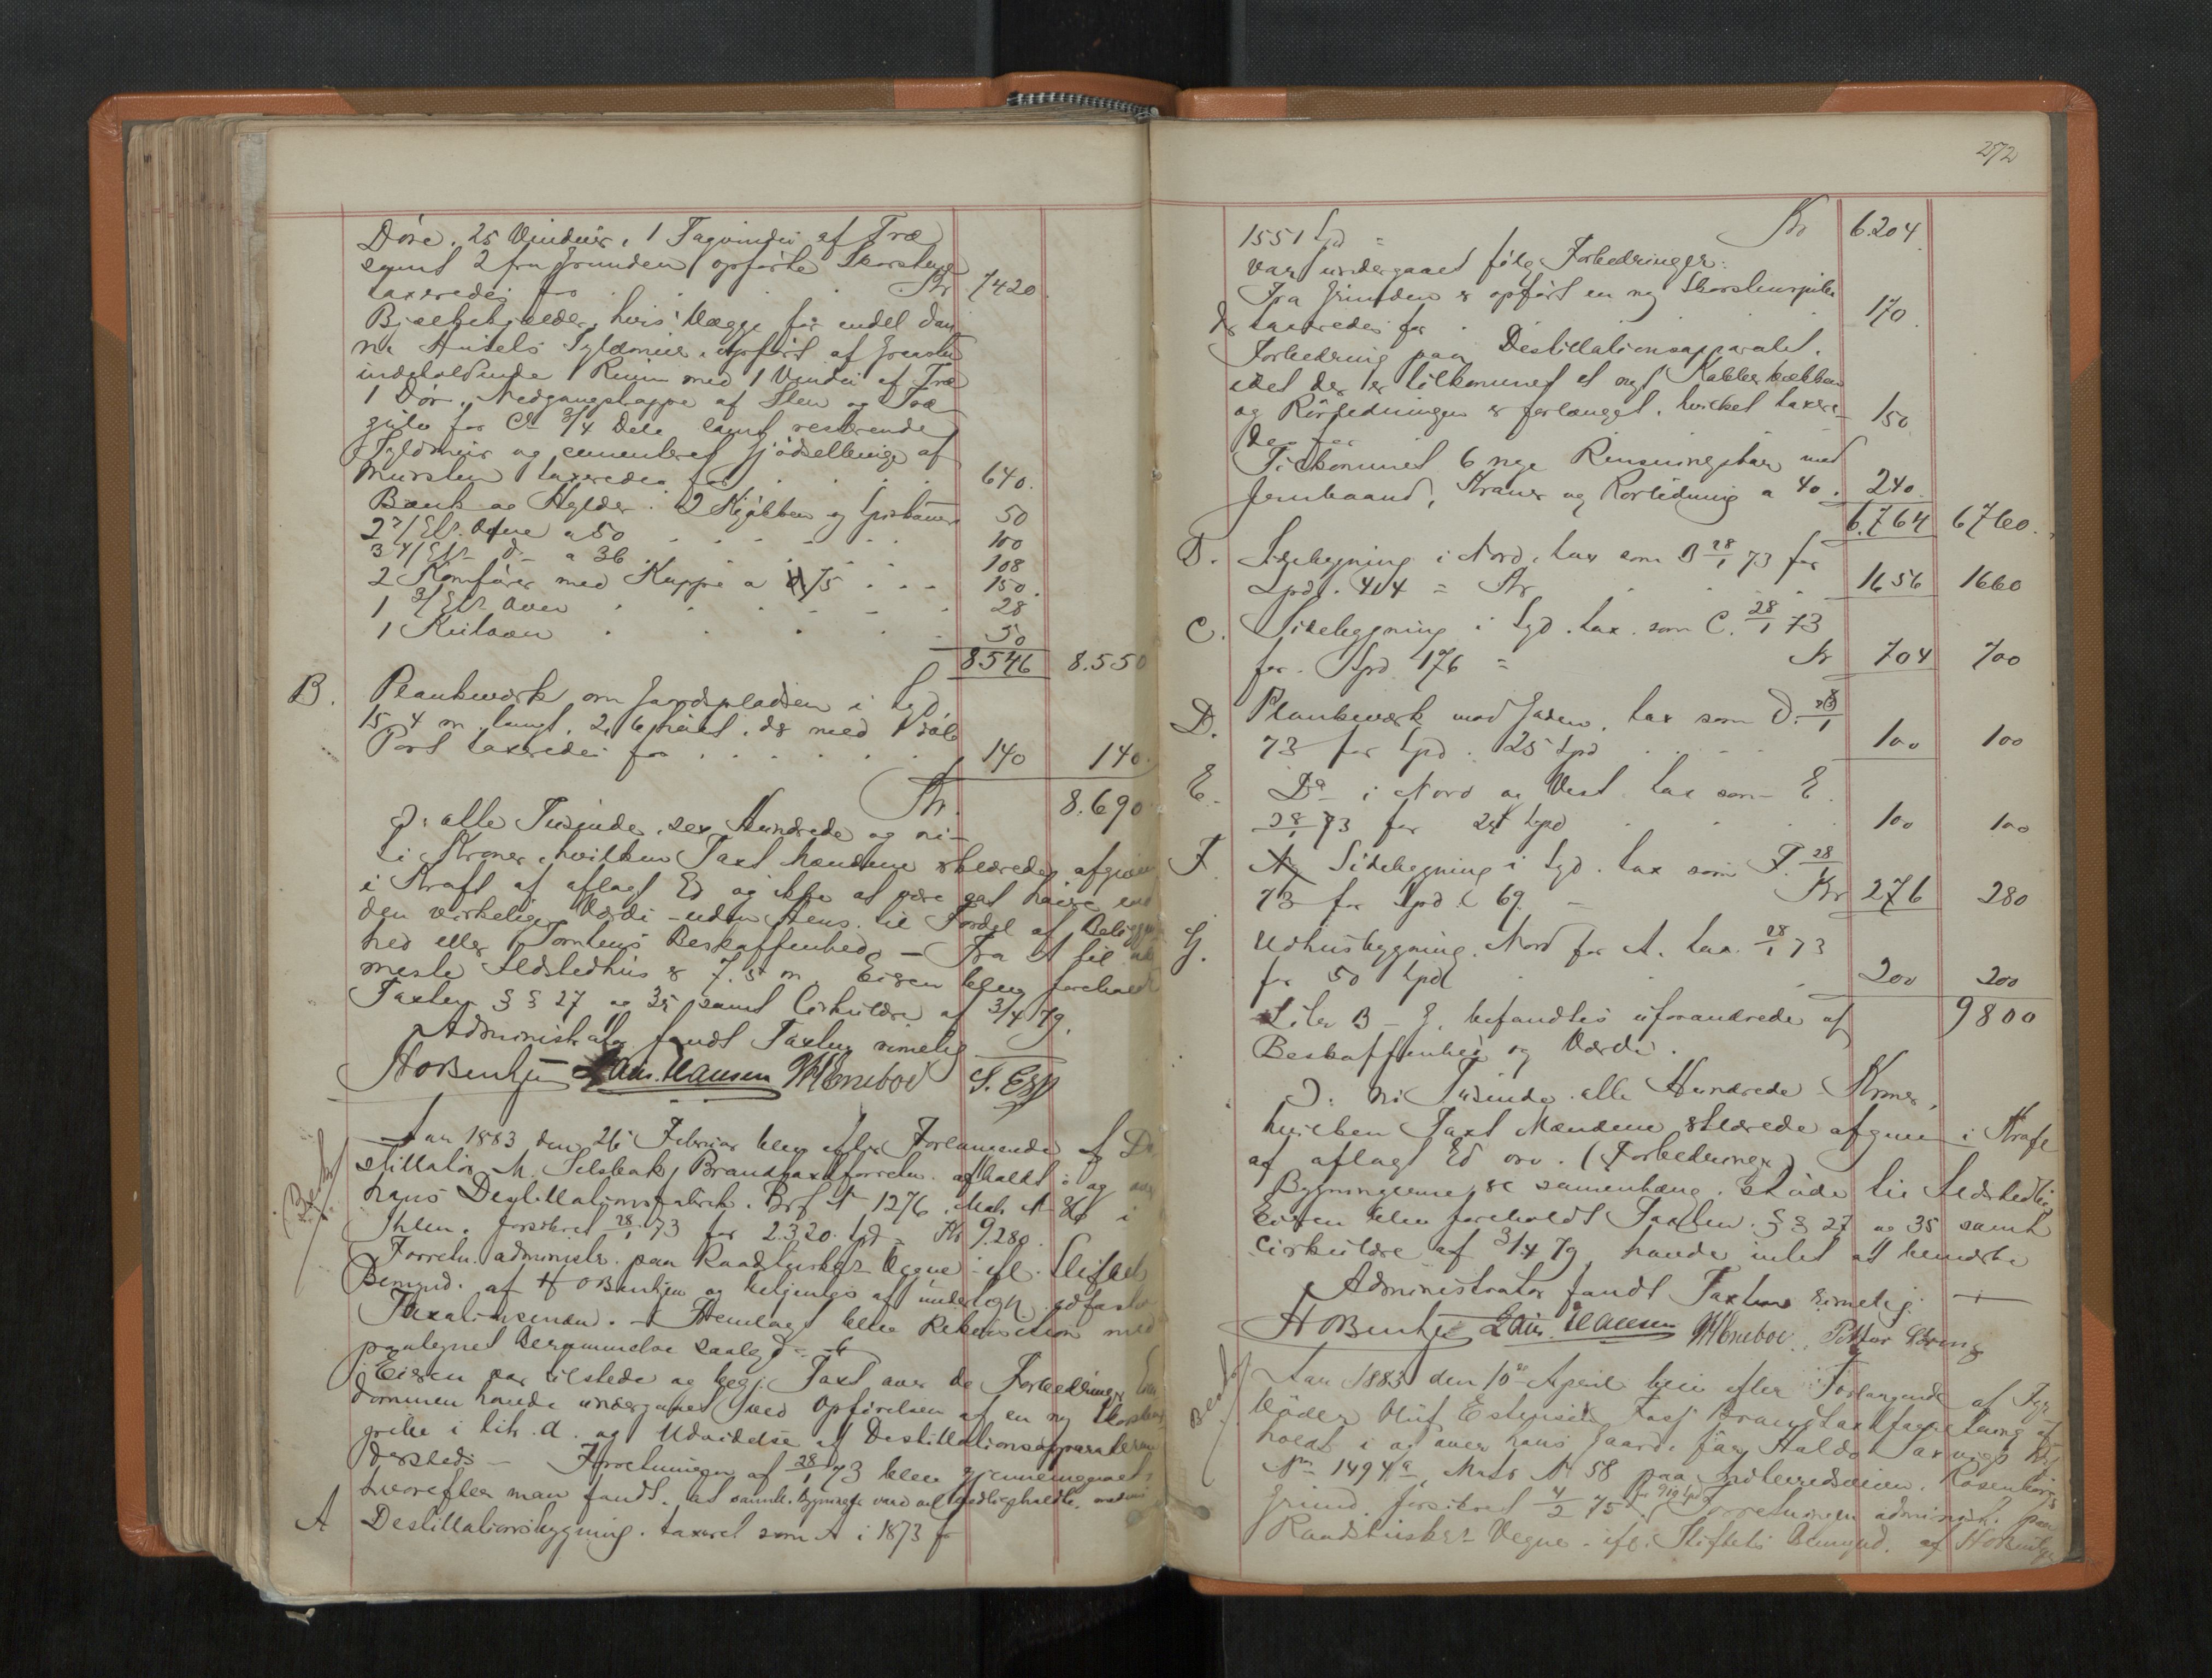 Døre. 25 Vinduer, 1 Tagvindu af Træ
samt 2 fra Grunden opførte Skorstene
taxeredes for Kr 7420
Bjælkekjælder, hvis Vægge for endel dan-
ne Husets Fyldmur, opført af Graasten
indeholdende 1 Rum med 1 Vindu af Træ
1 Dør, Nedgangstrappe af Sten og Træ
gulv for Ca 3/4 Dele samt resterende
Fyldmur og cementeret Gjødselbinge af
Mursten taxeredes for 640.
Bænk og Hylder. 2 Kjøkken og Spiskamre 50
2 2/Et. Ovne a 50 100
3 4/Et. do a 36 108
2 Komfurer med Kappe a 75 150.
1 3/Et. Oven 28
1 Rulloven 50
8546 8.550
B. Plankeværk om Gaardspladsen i Syd
15,4 m. langt, 2,6 høit, der med Dobb
Port taxeredes for 140 140.
Kr. 8.690
ɔ: otte Tusinde, sex Hundrede og ni-
ti Kroner, hvilken Taxt Mændene erklærede afgiven
i Kraft af aflagt Ed og ikke at være sat høiere end
den virkelige Værdi - uden Hens. til Fordel af Beliggen
hed eller Tomtens Beskaffenhed. - Fra A til
meste Ildstedhus er 7.5 m. Eieren blev foreholdt
Taxtlov §§ 27 og 35 samt Cirkulære af 3/4 79.
Administrator fandt Taxten rimelig.
HOBentzen Laur. Hansen MHeneboe S. Esp
Aar 1883 den 26 Februar blev efter Forlangende af De
stillatør M. Selsbak, Brandtaxtforretn. afholdt i og over
hans Destillationsfabrik. Brf No 1276, Mat. No 86 i
Ihlen. forsikret 28/1 73 for 2.320 Spd = Kr 9.280.
Forretn. administr. paa Raadstuskr. Vegne ifl. Stiftets
Bemynd. af HOBentzen og betjentes af undertegn. edfæstede
Taxationsmænd. - Fremlagt blev Rekvisition med
paategnet Berammelse saalyd.
Eieren var tilstede og begj. Taxt over de Forbedringer Eien
dommen havde undergaaet ved Opførelsen af en ny Skorstens
pibe i litr. A. og Udvidelse af Destillationsapparaterne
dersteds - Forretningen af 28/1 73 blev gjennemgaaet
hvorefter man fandt, at samtl. Bygninger vare vel vedligeholdte,
A Destillationsbygning. taxeret som A i 1873 for
272
1551 Spd = Kr 6.204.
var undergaaet følg. Forbedringer:
Fra Grunden er opført en ny Skorstenspibe
der taxeredes for 170.
Forbedring paa Destillationsapparatet,
idet der er tilkommet et nyt Kobberbækken
og Rørledningen er forlænget, hvilket taxere-
des for 150
Tilkommet 6 nye Rensningskar med
Jernbaand, Kraner og Rørledning a 40. 240.
6.764 6760.
B. Sidebygning i Nord, tax som B 28/1 73 for
Spd. 414 = Kr 1656 1660
C. Sidebygning i Syd. tax. som C. 28/1 73
for. Spd 176 = Kr 704 700
D. Plankeværk mod Gaden, tax som D. 28/1
73 for Spd. 25 Spd 100 100
E. Do i Nord og Vest tax som E.
28/1 73 for 25 Spd 100 100
F. Sidebygning i Syd. tax som F. 28/1
73 for Spd. 69 - Kr 276 280
G. Udhusbygning. Nord for A. tax. 28/1 73
for 50 Spd 200 200
9800
Liter B - G. befandtes uforandrede af
Beskaffenhed og Værdi.
ɔ: ni Tusinde otte Hundrede Kroner,
hvilken Taxt Mændene erklærede afgiven i Kraft
af aflagt Ed osv. (Forbedringer)
Bygningerne er sammenhæng.
Eieren blev foreholdt Taxtlov. §§ 27 og 35 samt
Cirkulære af 3/4 79, havde intet at bemærke
Administrator fandt Taxten rimelig.
HOBentzen Laur. Hansen MHeneboe, Petter
Aar 1883 den 10de April blev efter Forlangende af Fyr
bøder Oluf Estensen Fasj Brandtaxtforretning af
holdt i og over hans Gaard,
No 1494a, Matr No 58 paa Indherredsveien, Rosenborgs
Grund, forsikret 4/2 75 for 919 Spd. Forretningen administr. paa
Raadstuskr. Vegne ifl. Stiftets Bemynd. af HOBentzen